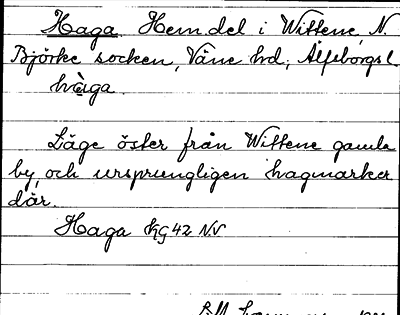 Haga Hemdel i Wittene, N.
Björke socken, Väne hd, Älfsborgs l.
hàga.
Läge öster från Wittene gamla
by, och ursprungligen hagmarker
där.
Haga KG 42 NV